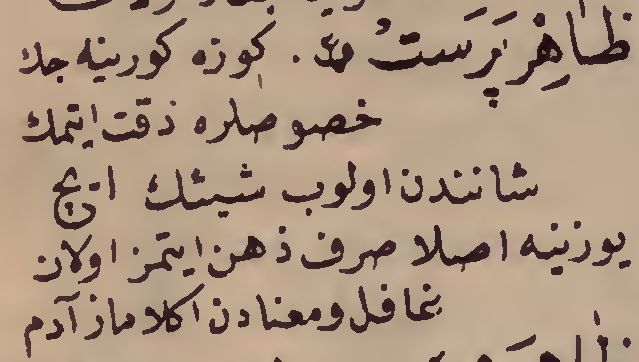 ظَاهِرپَرَسْتْ ص. كوزه كورينه جك
خصوصلره ذقت ايتمك
شانندن اولوب شيئك ايچ
يوزينه اصلا صرف ذهن ايتمز اولان
غافل ومعنادن اكلاماز آدم